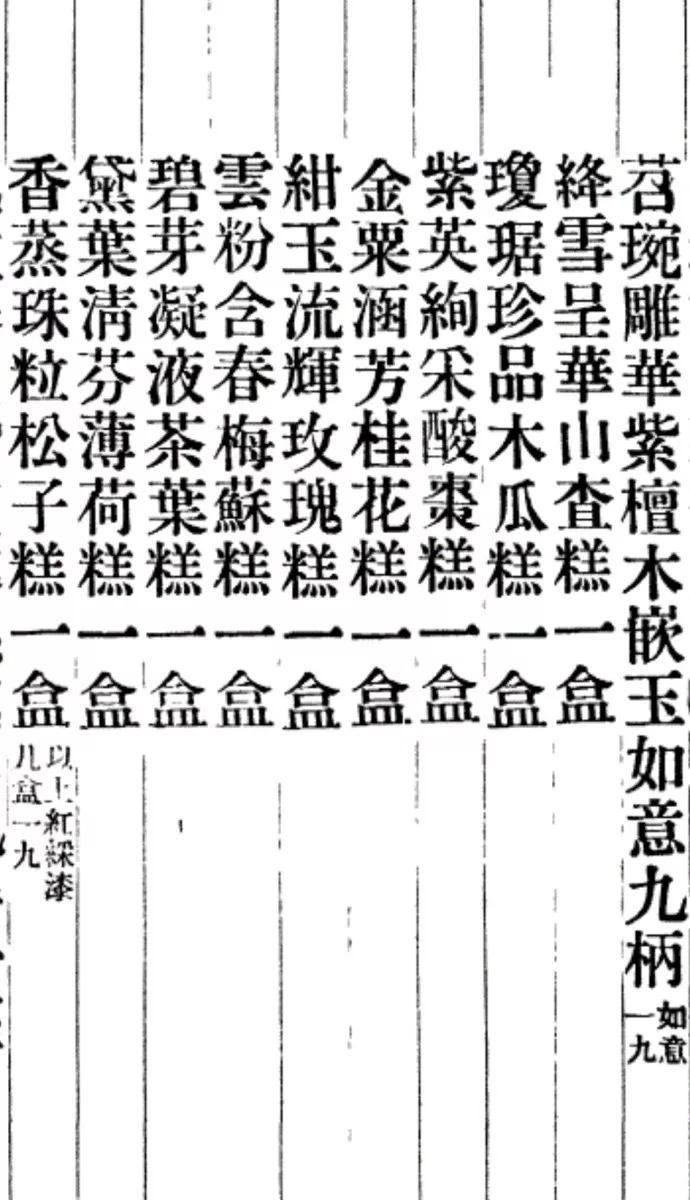 苕琬雕華紫檀木嵌玉如意九柄如意一九
絳雪呈華山査糕一盒
瓊琚珍品木瓜糕一盒
紫英絢采酸棗糕一盒
金粟涵芳桂花糕一盒
紺玉流輝玫瑰糕一盒
雲粉含春梅蘇糕一盒
碧芽凝液茶葉糕一盒
黛葉淸芬薄荷糕一盒
香蒸珠粒松子糕一盒以上紅綵漆九盒一九